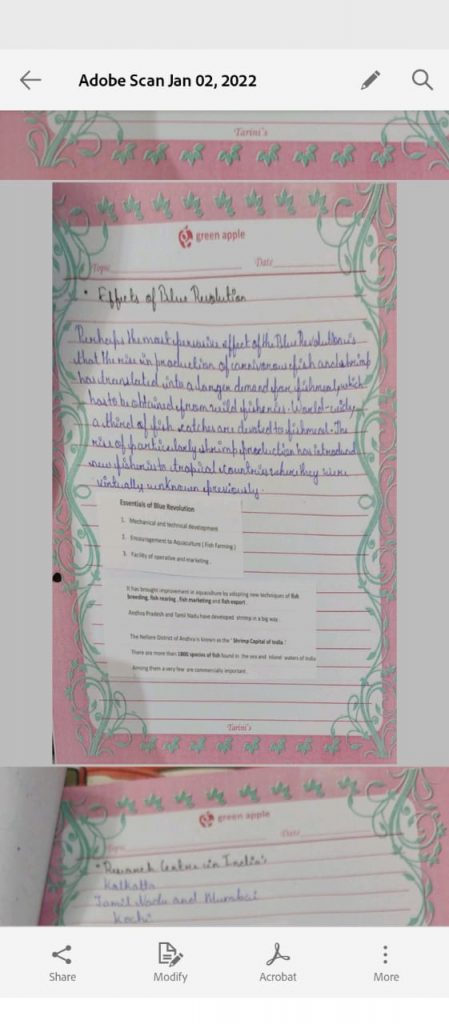 Adobe Scan Jan 02, 2022
Tarini's
green apple
Topic
Date
• Effects of Blue Revolution
Perhaps the most perversive effect of the Blue Revolution is
that the rise in production of carnivorous fish and shrimp
has translated into a larger demand for fishmeal, which
has to be obtained from wild fisheries. World-widy
a third of fish catches are devoted to fishmeal. The
rise of particularly shrimp production has introduced
new fisheries to tropical countries where they were
virtually unknown previously.
Essentials of Blue Revolution
1. Mechanical and technical development
2. Encouragement to Aquaculture ( Fish Farming )
3. Facility of operative and marketing .
It has brought improvement in aquaculture by adopting new techniques of fish
breeding, fish rearing , fish marketing and fish export .
Andhra Pradesh and Tamil Nadu have developed shrimp in a big way .
The Nellore District of Andhra is known as the ' Shrimp Capital of India '
There are more than 1800 species of fish found in the sea and inland waters of India
Among them a very few are commercially important .
Tarini's
green apple
Topic
Date
• Research Centre in India's
Kolkatta
Tamil Nadu and Mumbai
Kochi
Share
Modify
Acrobat
More